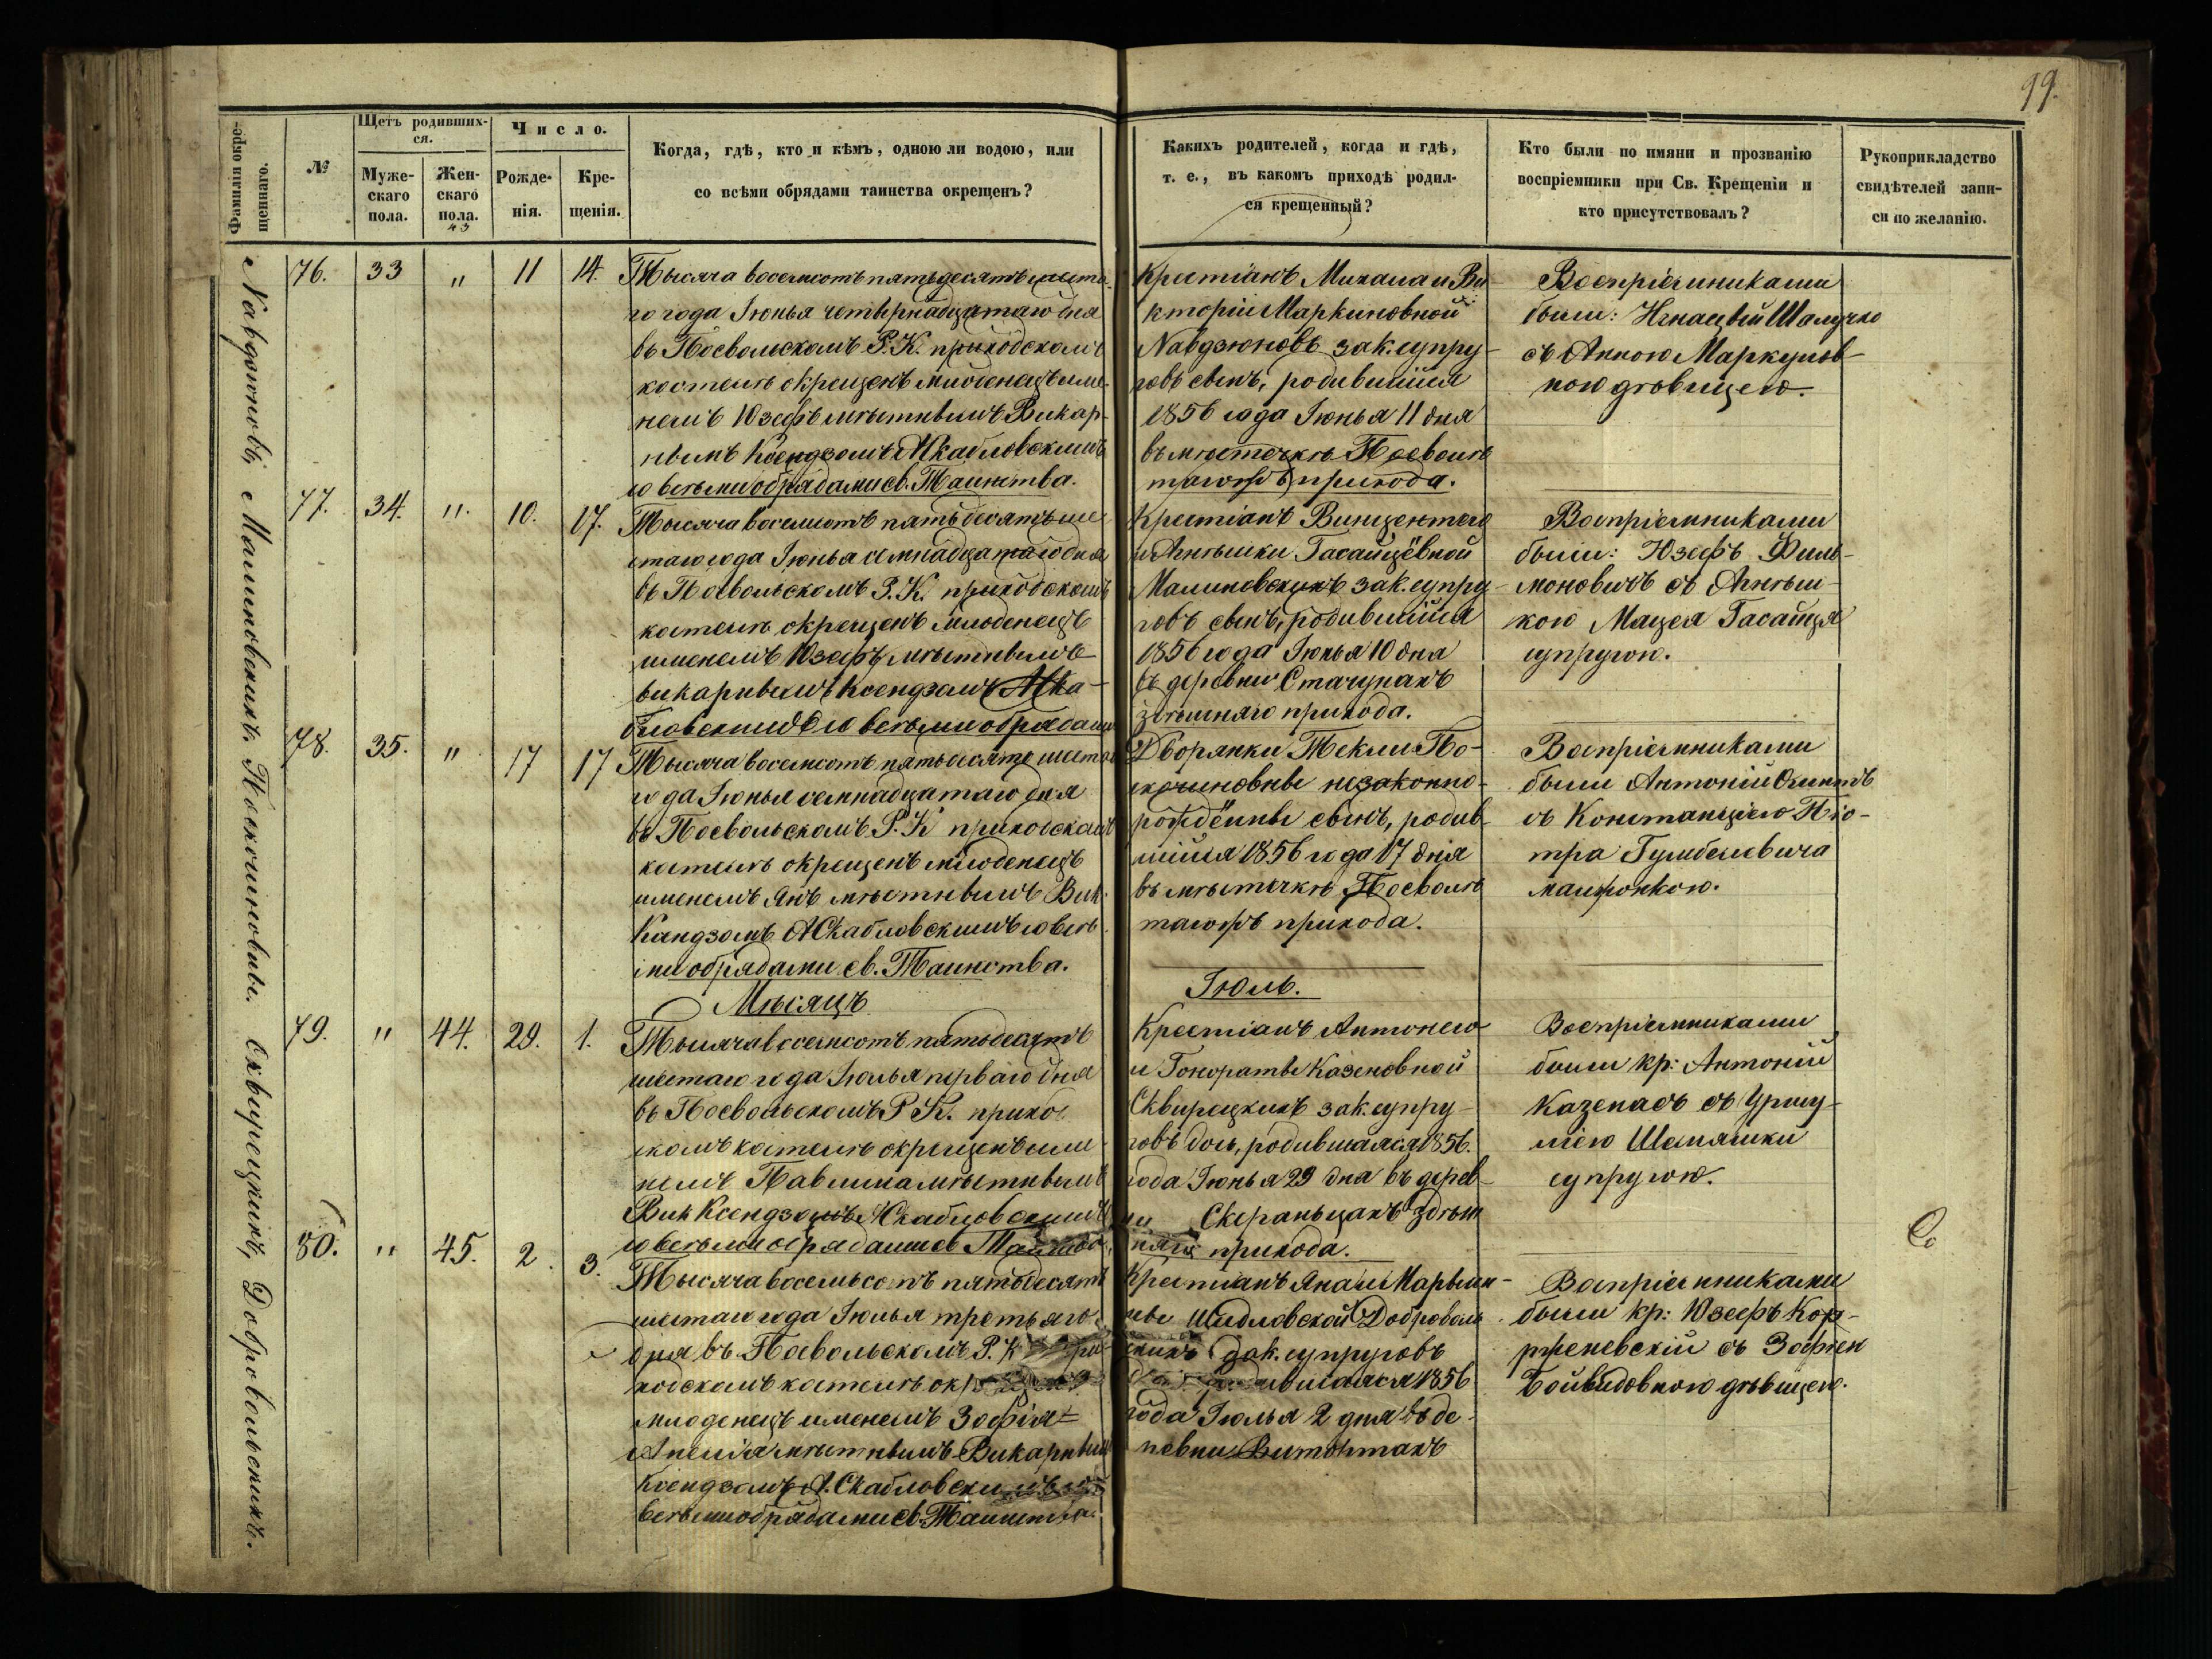 99.
Фамиліи окре-
щеннаго.
№
Щетъ родивших-
ся.
Муже-
скаго
пола.
Жен-
скаго
пола.
43
Число.
Рожде-
нія.
Кре-
щенія.
Когда, гдѣ, кто и кѣмъ, одною ли водою, или
со всѣми обрядами таинства окрещенъ?
Какихъ родителей, когда и гдѣ,
т. е., въ какомъ приходѣ родил-
ся крещенный?
Кто были по имяни и прозванію
воспріемники при Св. Крещеніи и
кто присутствовалъ?
Рукоприкладство
свидѣтелей запи-
си по желанію.
Навдзюновъ,
76. 33 " 11 14.
Тысяча восемсотъ пятьдесятъ шеста-
го года Іюнья четырнадцатаго дня
въ Посвольскомъ Р. К. приходскомъ
костелѣ окрещенъ младенецъ име-
немъ Юзефъ мѣстнымъ Викар-
нымъ Ксендзомъ А Скабловскимъ
со всѣми обрядами св. Таинства.
Крестіанъ Михала и Ви-
кторіи Маркиновной
Навдзюновъ зак. супру-
говъ сынъ, родившійся
1856 года Іюнья 11 дня
въ мѣстечкѣ Посволѣ
тогожъ прихода.
Воспріемниками
были: Игнацый
съ Анною
ною дѣвицею.
Малиновскихъ,
77. 34. " 10. 17.
Тысяча восемсотъ пятьдесятъ ше-
стаго года Іюнья семнадцатаго дня
въ Посвольскомъ Р. К. приходскомъ
костелѣ окрещенъ младенецъ
именемъ Юзефъ мѣстнымъ
викарнымъ Ксендзомъ А Ска-
бловскимъ со всѣми обрядами
Крестіанъ Винцентего
и Агнѣшки Гасайцёвной
Малиновскихъ зак. супру-
говъ сынъ, родившійся
1856 года Іюнья 10 дня
въ деревни Стачунахъ
здѣшняго прихода.
Воспріемниками
были: Юзефъ Филь-
моновичъ съ Агнѣш-
кою Мацея Гасайця
супругою.
Покошиновны.
78. 35. " 17 17
Тысяча восемсотъ пятьдесятъ шестаго
года Іюнья семнадцатаго дня
въ Посвольскомъ Р. К приходскомъ
костелѣ окрещенъ младенецъ
именемъ Янъ мѣстнымъ Вик.
Ксендзомъ А Скабловскимъ со всѣ-
ми обрядами св. Таинства.
Дворянки Текли По-
кошиновны незаконно-
рождённы сынъ, родив-
шійся 1856 года 17 дня
въ мѣстечкѣ Посволѣ
тогожъ прихода.
Воспріемниками
были Антоній
съ Констанціею Піо-
тра Гумбелевича
малжонкою.
Мѣсяцъ Іюль.
Сквирецкихъ,
79. " 44. 29. 1.
Тысяча восемсотъ пятьдесятъ
шестаго года Іюлья перваго дня
въ Посвольскомъ Р. К. приход-
скомъ костелѣ окрещенъ име-
немъ Павлина мѣстнымъ
Вик Ксендзомъ А Скабловскимъ
со всѣми обрядами св Таинства.
Крестіанъ Антонего
и Гонораты Казеновной
Сквирецкихъ зак. супру-
говъ дочь, родившаяся 1856.
года Іюнья 29 дня въ дерев-
ни Скераньцахъ здѣш-
няго прихода.
Воспріемниками
были кр: Антоній
Казенасъ съ Уршу-
лею
супругою.
Добровольскихъ.
80. " 45. 2. 3.
Тысяча восемьсотъ пятьдесятъ
шестаго года Іюлья третьяго
дня въ Посвольскомъ Р. К при-
ходскомъ костелѣ окрещенъ
младенецъ именемъ Зофія
Анеля мѣстнымъ Викарнымъ
Ксендзомъ А. Скабловскимъ со
всѣми обрядами св Таинства.
Крестіанъ Яна и Марьян-
ны Шидловской Доброволь-
скихъ зак. супруговъ
дочь родившаяся 1856
года Іюлья 2 дня въ де-
ревни Витортахъ
Воспріемниками
были кр: Юзефъ
съ Зофіею
дѣвицею.